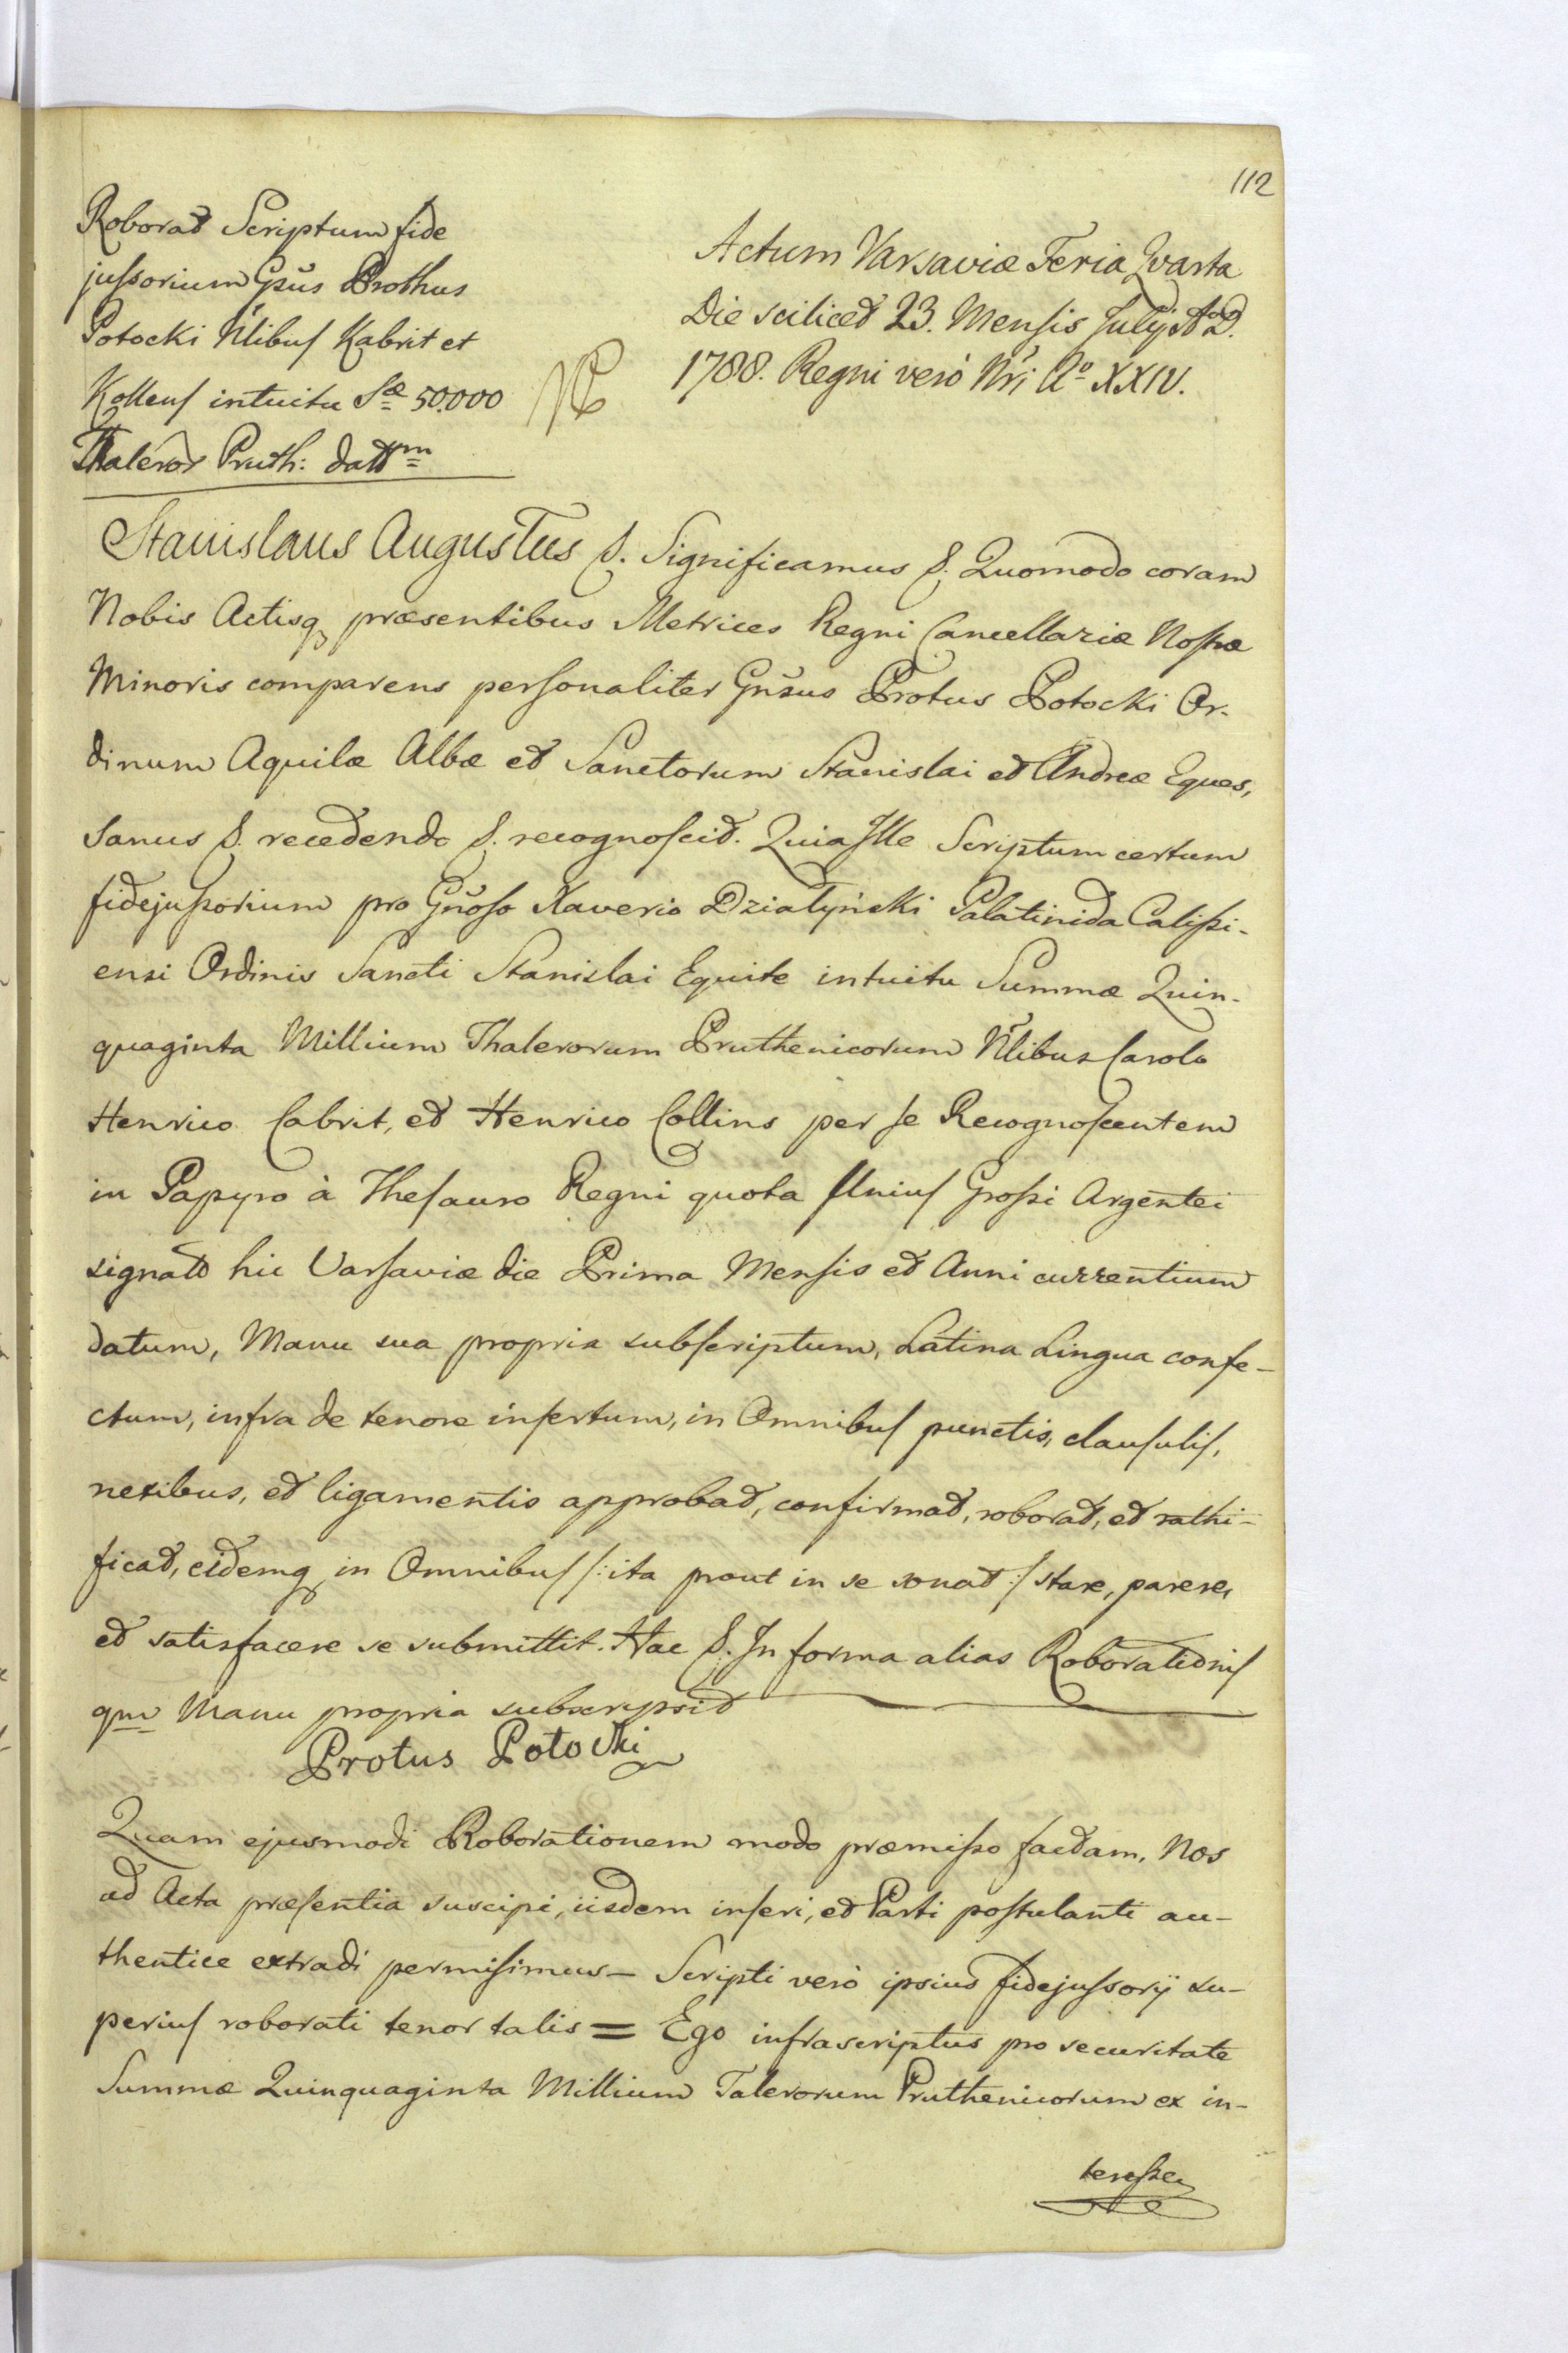 112
Roborat Scriptum fide
jussorium Gsus Prothus
Potocki Nlibus Kabrit et
Kollens intuitu Sae 50.000
Thaleror Pruth: dattm
Actum Varsaviæ Feria Qvarta
Die scilicet 23. Mensis Julÿ AoD.
1788. Regni verò Nri Ao XXIV.
Stanislaus Augustus &. Significamus &. Quomodo coram
Nobis Actisq præsentibus Metrices Regni Cancellariæ Nostræ
Minoris comparens personaliter Gnsus Protus Potocki Or-
dinum Aquilæ Albæ et Sanctorum Stanislai et Andreæ Eques,
sanus &. recedendo &. recognoscit. Quia Ille Scriptum certum
fidejussorium pro Gnoso Xaverio Działyński Palatinida Calissi-
ensi Ordinis Sancti Stanislai Equite intuitu Summæ Quin-
quaginta Millium Thalerorum Pruthenicorum Nlibus Carolo
Henrico Cabrit, et Henrico Collins per se Recognoscentem
in Papyro à Thesauro Regni quota Unius Grossi Argentei
signato hic Varsaviæ die Prima Mensis et Anni currentium
datum, Manu sua propria subscriptum, Latina Lingua confe-
ctum, infra de tenore insertum, in Omnibus punctis, clausulis,
nexibus, et ligamentis approbat, confirmat, roborat, et rathi-
ficat, eidemq in Omnibus /: ita prout in se sonat :/ stare, parere,
et satisfacere se submittit. Hac &. In forma alias Roborationis
qm Manu propria subscripsit
Protus Potocki
Quam ejusmodi Roborationem modo præmisso factam, Nos
ad Acta præsentia suscipi, iisdem inseri, et Parti postulanti au-
thentice extradi permisimus – Scripti verò ipsius fidejussorÿ su-
perius roborati tenor talis = Ego infrascriptus pro securitate
Summæ Quinquaginta Millium Talerorum Pruthenicorum ex in-
teresse